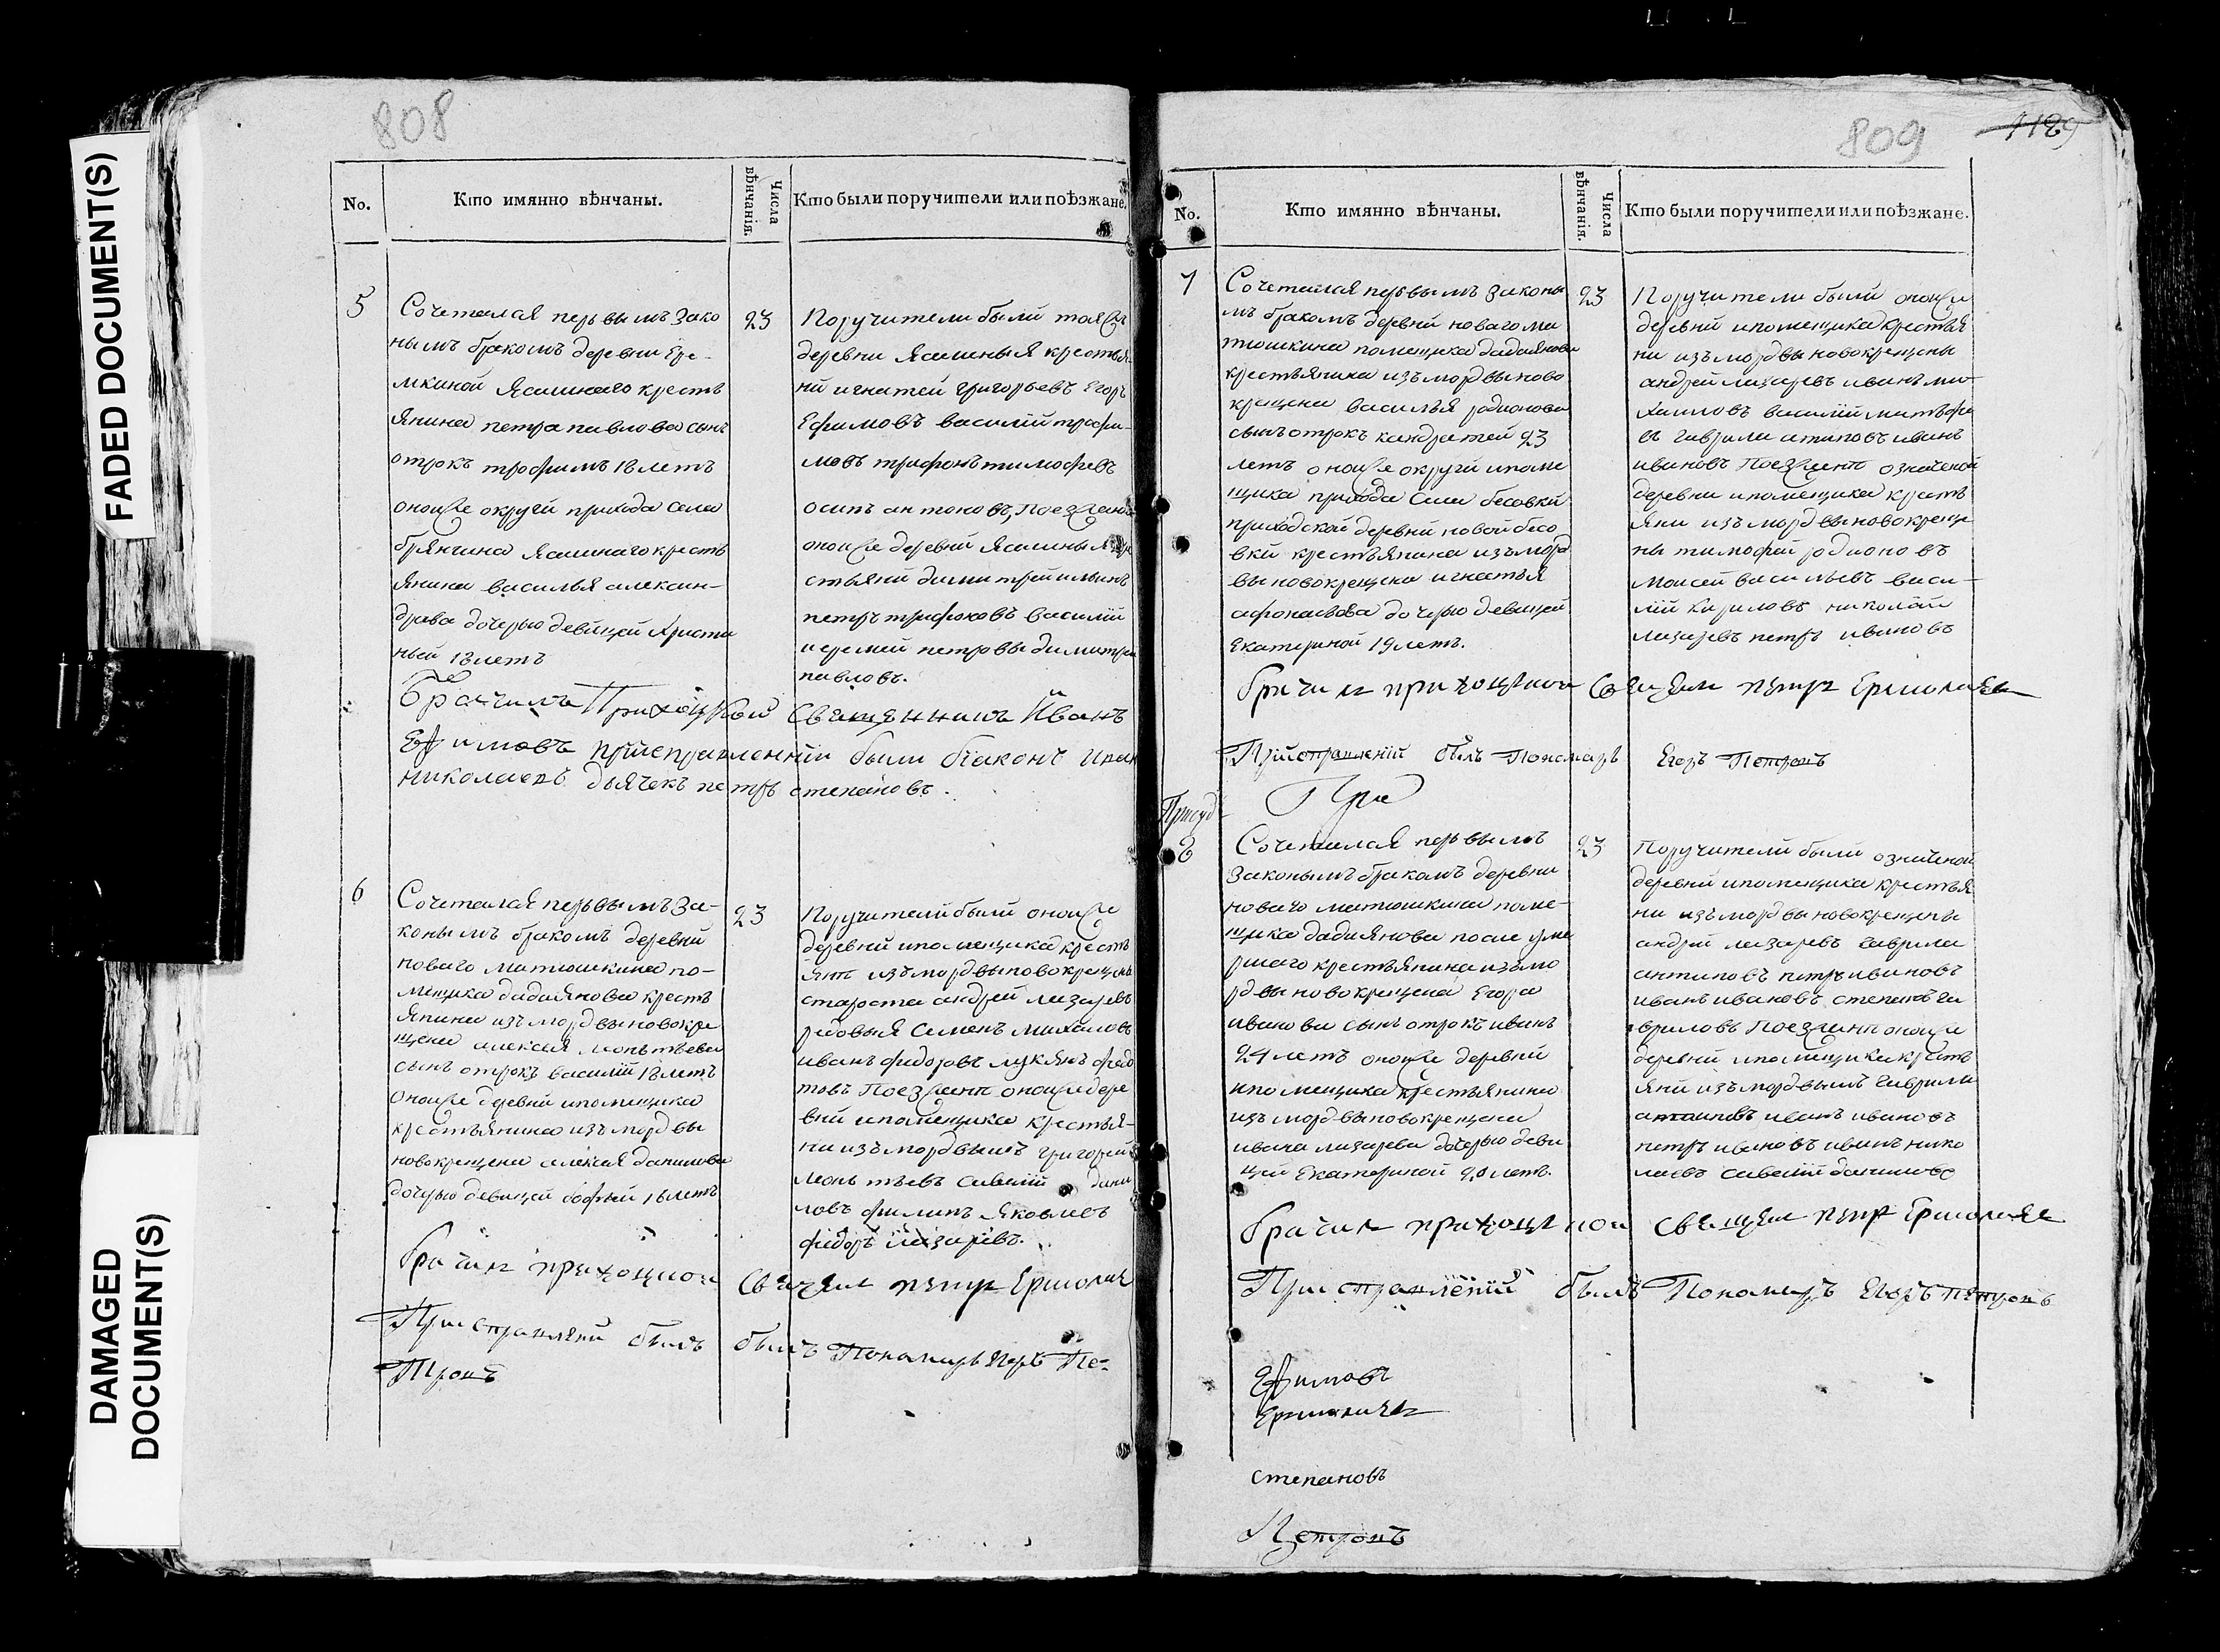 FADED DOCUMENT(S)
DAMAGED
DOCUMENT(S)
808
No.
Кто имянно вѣнчаны.
Числа
вѣнчанія.
Кто были поручители или поѣзжане.
5
Сочетался первымъ зако
нымъ бракомъ деревни Ере-
мкиной Ясашнаго кресть
янина петра павлова сынъ
отрокъ трофимъ 18 летъ
оной же округи прихода села
брянчина Ясашнаго кресть
янина василья алексан-
драва дочерью девицей христи
ньей 18 летъ
23
Поручители были тоя же
деревни Ясашныя крестья
ни игнатей григорьевъ Егоръ
Ефимовъ василий трофи-
мовъ трифонъ тимофевъ
осипъ антоновъ, Поезжана
оной же деревни Ясашныя кре
стьяни димитрей ильинъ
петръ трифоновъ василий
и еремей петровы димитреи
павловъ.
Брачилъ Приходской Священникъ Иванъ
Ефимовъ при исправлении были диаконъ Иван
николаевъ дьячекъ петръ степановъ.
6
Сочетался первымъ за-
конымъ бракомъ деревни
новаго матюшкина по-
мещика дадиянова кресть
янина изъ мордвы новокре
щена алексея леонтьева
сынъ отрокъ василий 18 летъ
оной же деревни и помещика
крестьянина изъ мордвы
новокрещена алексея данилова
дочерью девицей софьей 18 летъ
23
Поручители были оной же
деревни и помещика кресть
яня изъ мордвы новокрещены
староста андрей лазаревъ
редовыя Семенъ михаловъ
иванъ федоровъ лукянъ федо
товъ Поезжаня оной же дере
вни и помещика крестья-
ни изъ мордвы григорей
леонтьевъ савелий дани
ловъ филипъ яковлевъ
федоръ лазаревъ.
брачил приходцкои Свещен петр Ермолае
При справлени былъ былъ Пономарь Егоръ Пе-
Тровъ
809
1129
No.
Кто имянно вѣнчаны.
Числа
вѣнчанія.
Кто были поручители или поѣзжане.
7
Сочетался первымъ законы
мъ бракомъ деревни новаго ма
тюшкина помещика дадиянова
крестьянина изъ мордвы ново
крещена василья родионова
сынъ отрокъ кандратей 23
летъ оной же округи и поме
щика прихода Села бесовки
приходской деревни новой бесо
вки крестьянина изъ морд
вы новокрещена игнатья
афонасьева дочерью девицей
Екатериной 19 летъ.
23
Поручители были оной же
деревни и помещика крестья
ни изъ мордвы новокрещены
андрей лазаревъ иванъ ми-
хаиловъ василий матвефе
въ гаврила атиповъ иванъ
ивановъ Поезжаня означеной
деревни и помещика кресть
яни изъ мордвы новокреще
ны тимофей родионовъ
моисей васильевъ васи-
лий кириловъ николай
лазаревъ петръ ивановъ
брачил приходцкои Свещен петр Ермолаев
При справлений былъ Пономарь Егоръ Петровъ
При
8
Сочетался первымъ
законымъ бракамъ деревни
новаго матюшкина поме-
щика дадиянова после уме
ршаго крестьянина изъ мо
рдвы новокрещена Егора
иванова сынъ отрокъ иванъ
24 летъ оной же деревни
и помещика крестьянина
изъ мордвы новокрещена
ивана лазарева дочерью деви
цей Екатериной 20 летъ.
23
Поручители были означеной
деревни и помещика крестья
ни изъ мордвы новокрещены
андрей лазаревъ гаврила
антиповъ петръ ивановъ
иванъ ивановъ степанъ га
вриловъ Поезжаня оной же
деревни и помещика кресть
яни изъ мордвы гаврила
атиповъ иванъ ивановъ
петръ ивановъ иванъ нико
лаевъ савелий даниловъ
брачил приходцкои свещен петр Ермолае
При справлений былъ Пономарь Егоръ Петровъ
Ефимовъ
Ермолаевъ
степановъ
Петровъ